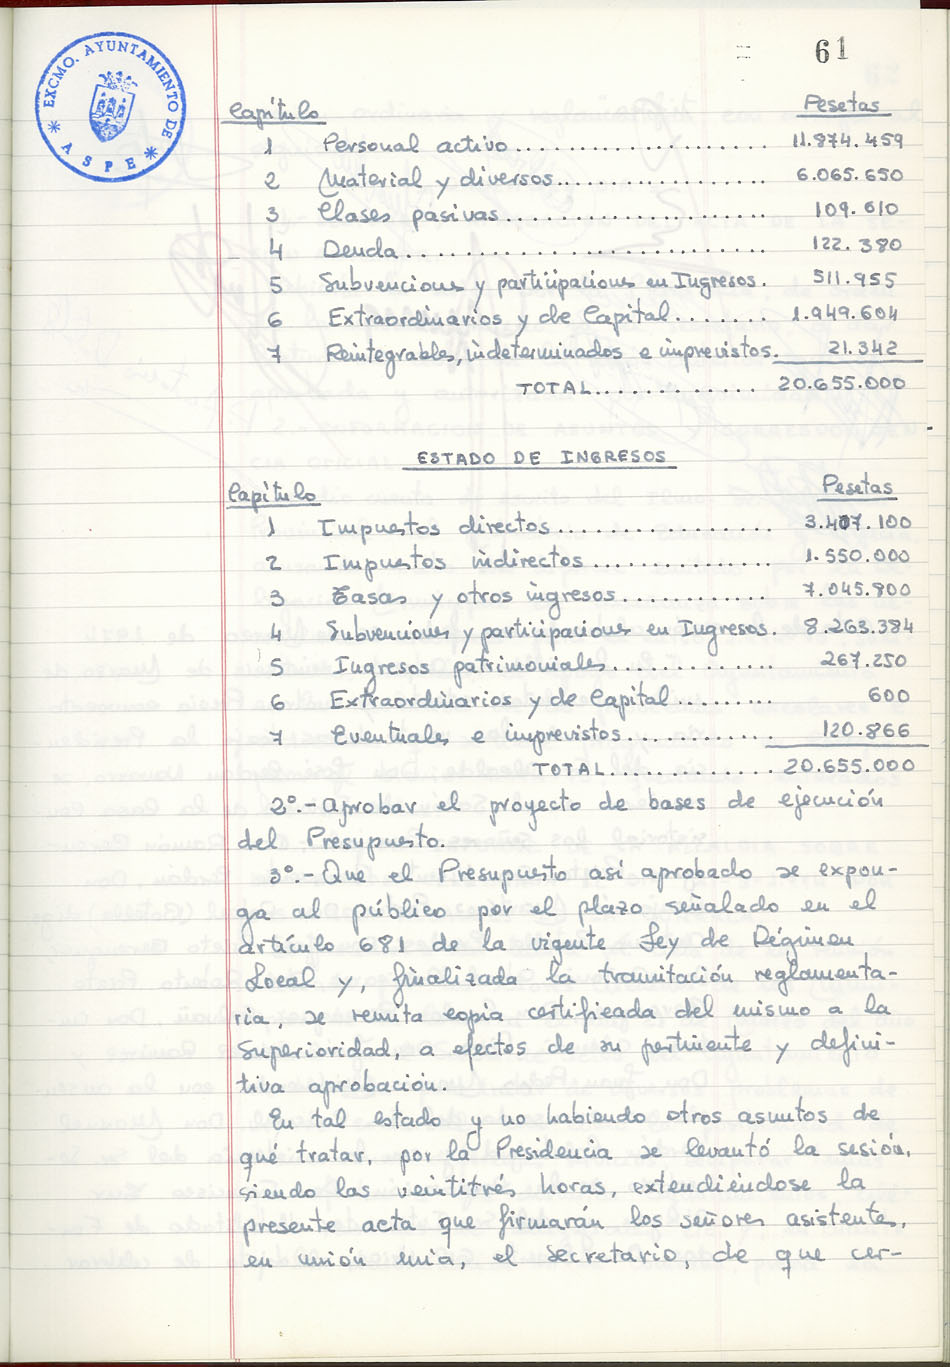 61
EXCMO. AYUNTAMIENTO DE
* ASPE *
Capítulo Pesetas
1 Personal activo................... 11.874.459
2 Material y diversos................ 6.065.650
3 Clases pasivas..................... 109.610
4 Deuda.............................. 122.380
5 Subvenciones y participaciones en Ingresos. 511.955
6 Extraordinarios y de Capital....... 1.949.604
7 Reintegrables, indeterminados e imprevistos. 21.342
TOTAL............ 20.655.000
ESTADO DE INGRESOS
Capítulo Pesetas
1 Impuestos directos................. 3.407.100
2 Impuestos indirectos............... 1.550.000
3 Tasas y otros ingresos............. 7.045.800
4 Subvenciones y participaciones en Ingresos. 8.263.384
5 Ingresos patrimoniales............. 267.250
6 Extraordinarios y de Capital....... 600
7 Eventuales e imprevistos........... 120.866
TOTAL............ 20.655.000
2º.- Aprobar el proyecto de bases de ejecución
del Presupuesto.
3º.- Que el Presupuesto asi aprobado se expon-
ga al público por el plazo señalado en el
artículo 681 de la vigente Ley de Régimen
Local y, finalizada la tramitación reglamenta-
ria, se remita copia certificada del mismo a la
Superioridad, a efectos de su pertinente y defini-
tiva aprobación.
En tal estado y no habiendo otros asuntos de
qué tratar, por la Presidencia se levantó la sesión,
siendo las veintitrés horas, extendiéndose la
presente acta que firmarán los señores asistentes,
en unión mía, el Secretario, de que cer-